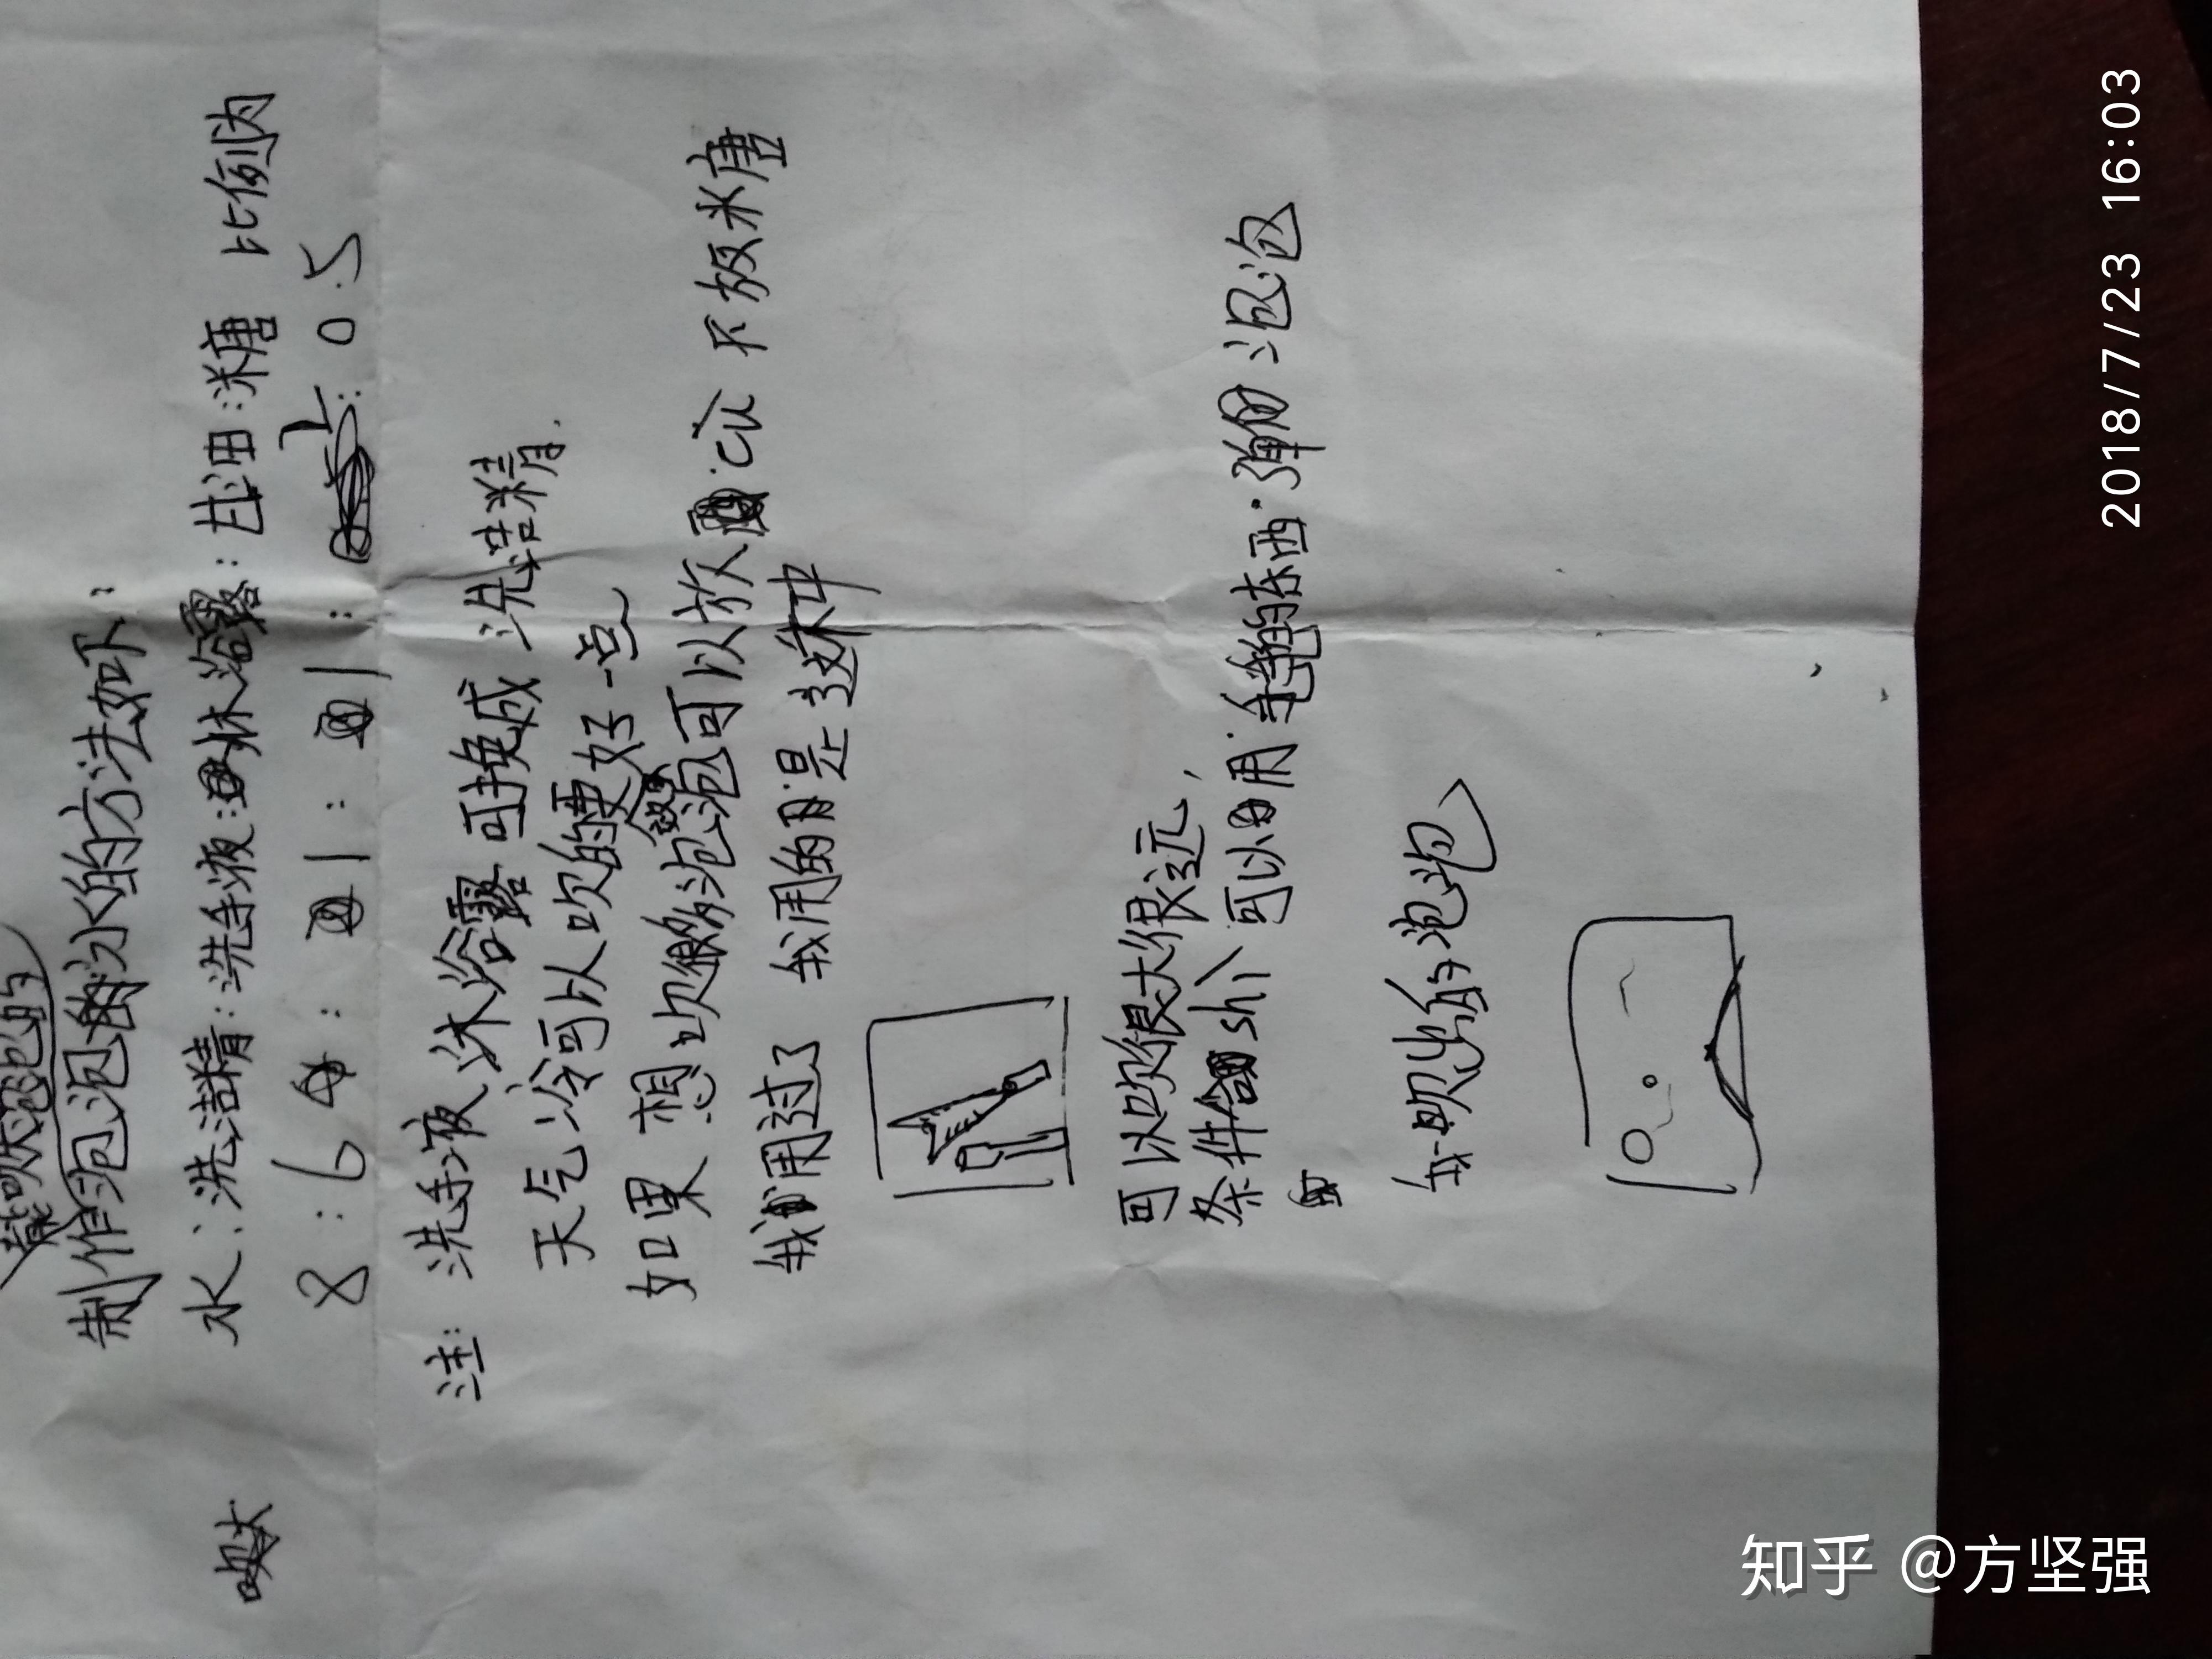 能吹大泡的
制作泡泡的水的方法如下:
水:洗洁精:洗手液:沐浴露:甘油:糖 比例为
8:6:1:1:1:0.5
吹大
注:洗手液 沐浴露 可换成 洗洁精.
天气冷可以吹的更好一点
如果想吹很多泡泡可以放 cù 不放糖
我用过了 我用的是这种
可以吹很大很远,
条件 sh下可以用 的东西.弹 泡泡
我吹出的泡泡
2018/7/23 16:03
知乎 @方坚强